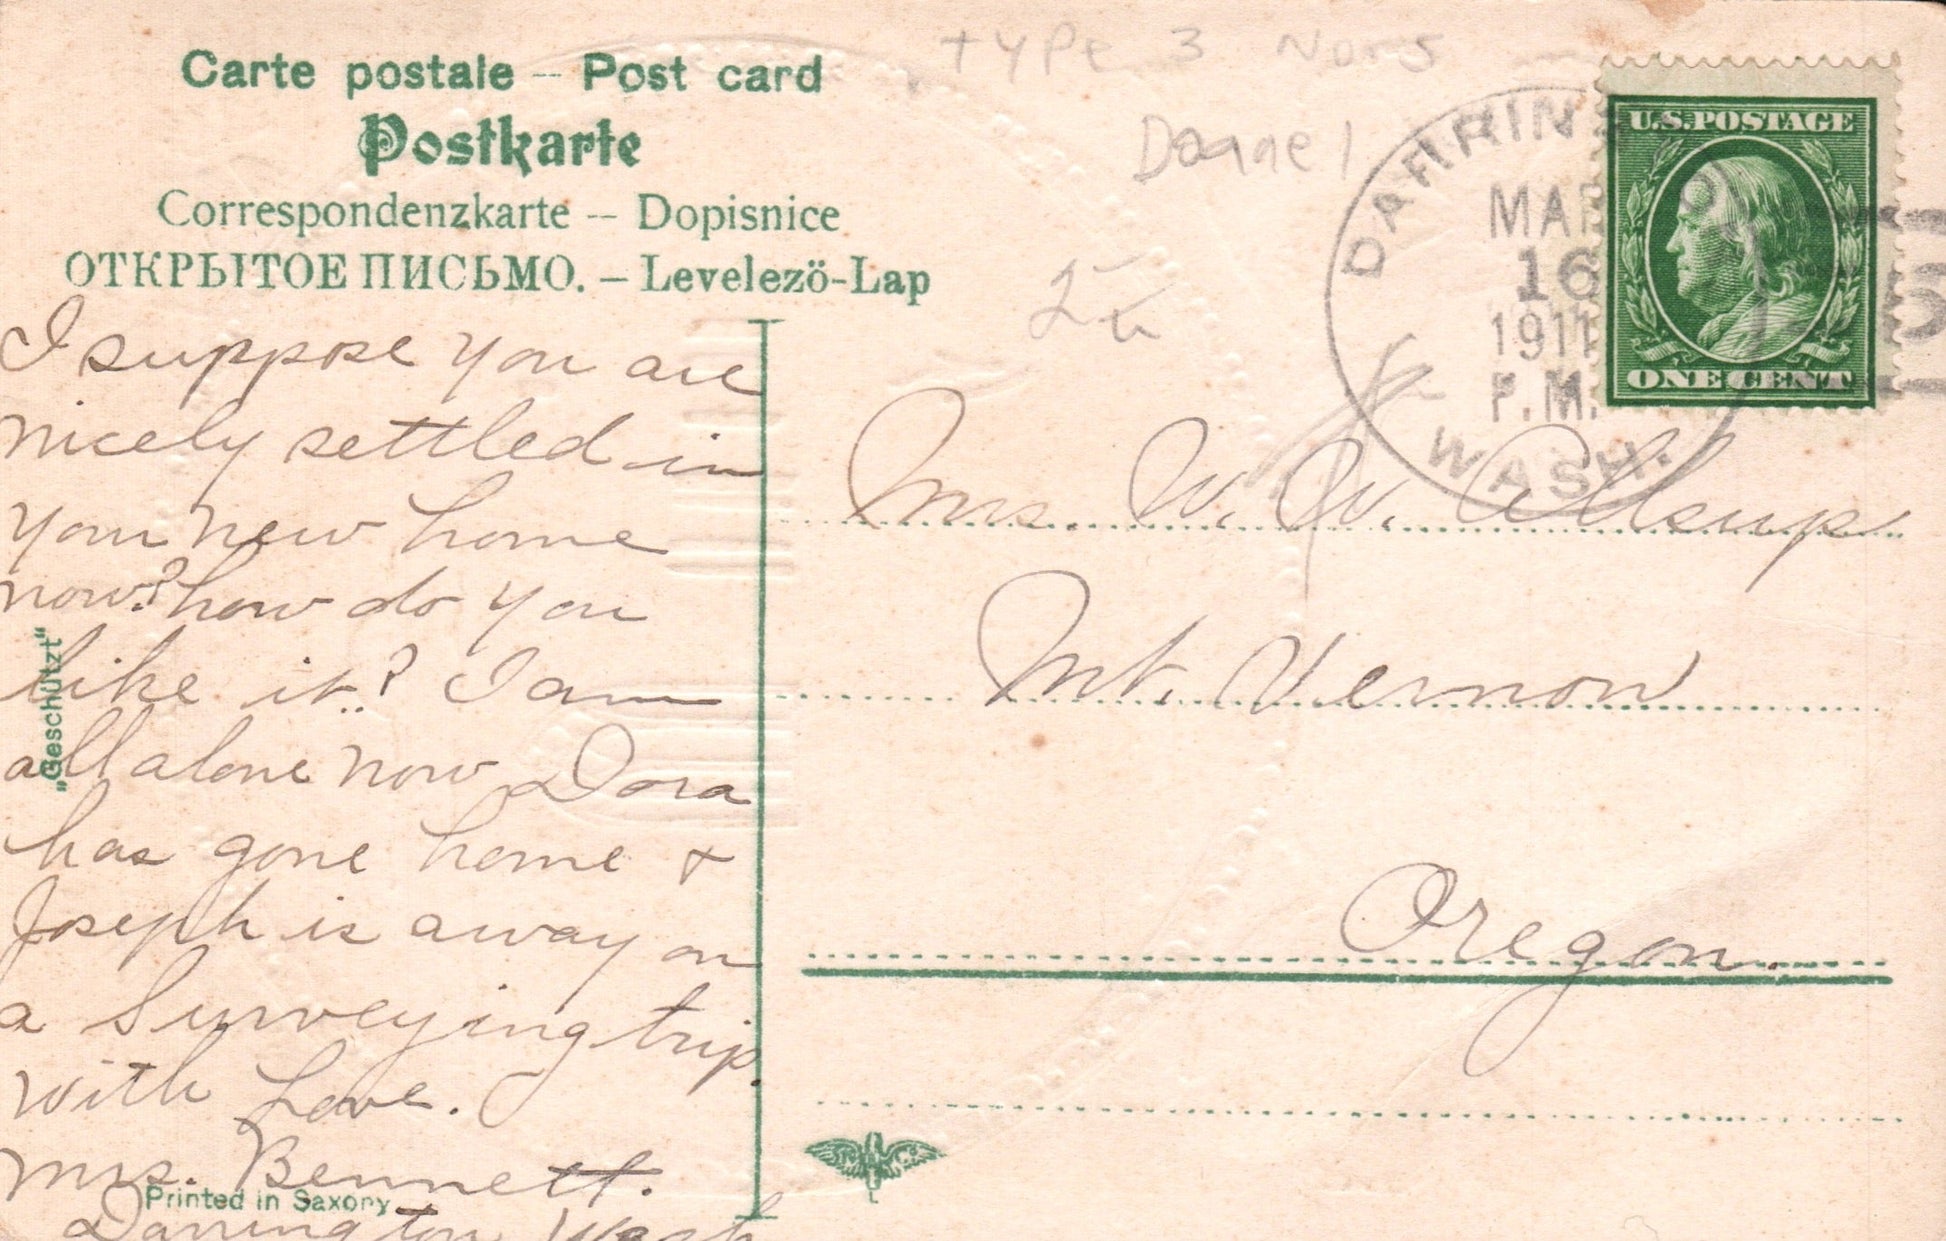 Carte postale – Post card
Postkarte
Correspondenzkarte – Dopisnice
ОТКРЫТОЕ ПИСЬМО. – Levelezö-Lap
type 3 Nors
U.S. POSTAGE
ONE CENT
MAR
16
1911
P.M.
WASH.
I suppose you are
nicely settled in
your new home
now? how do you
like it? I am
all alone now Dora
has gone home &
Joseph is away on
a Surveying trip.
with Love.
Mrs. Bennett.
Darrington Wash
Mrs. W. W. Allsup.
Mt. Vernon
Oregon.
„Geschützt“
Printed in Saxony